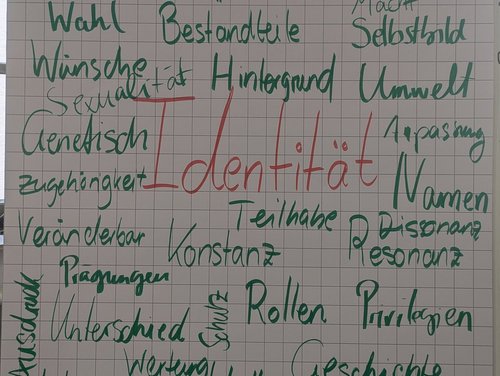 Macht
Wahl Bestandteile Selbstbild
Wünsche Hintergrund Umwelt
Sexualität
Genetisch Identität Anpassung
Zugehörigkeit Namen
Teilhabe Dissonanz
Veränderbar Konstanz Resonanz
Prägungen
Ausdruck Unterschied Schutz Rollen Privilegien
Wertung Geschichte